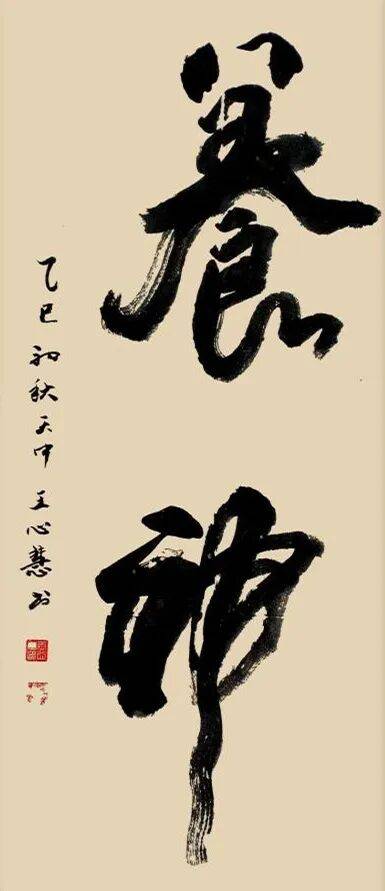 養神
乙巳初秋天中王心慧书